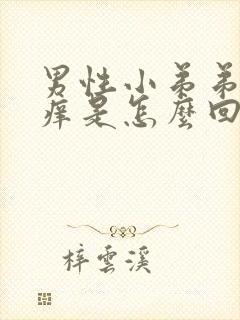 男性小弟弟
痒是怎麽回
梓雲溪